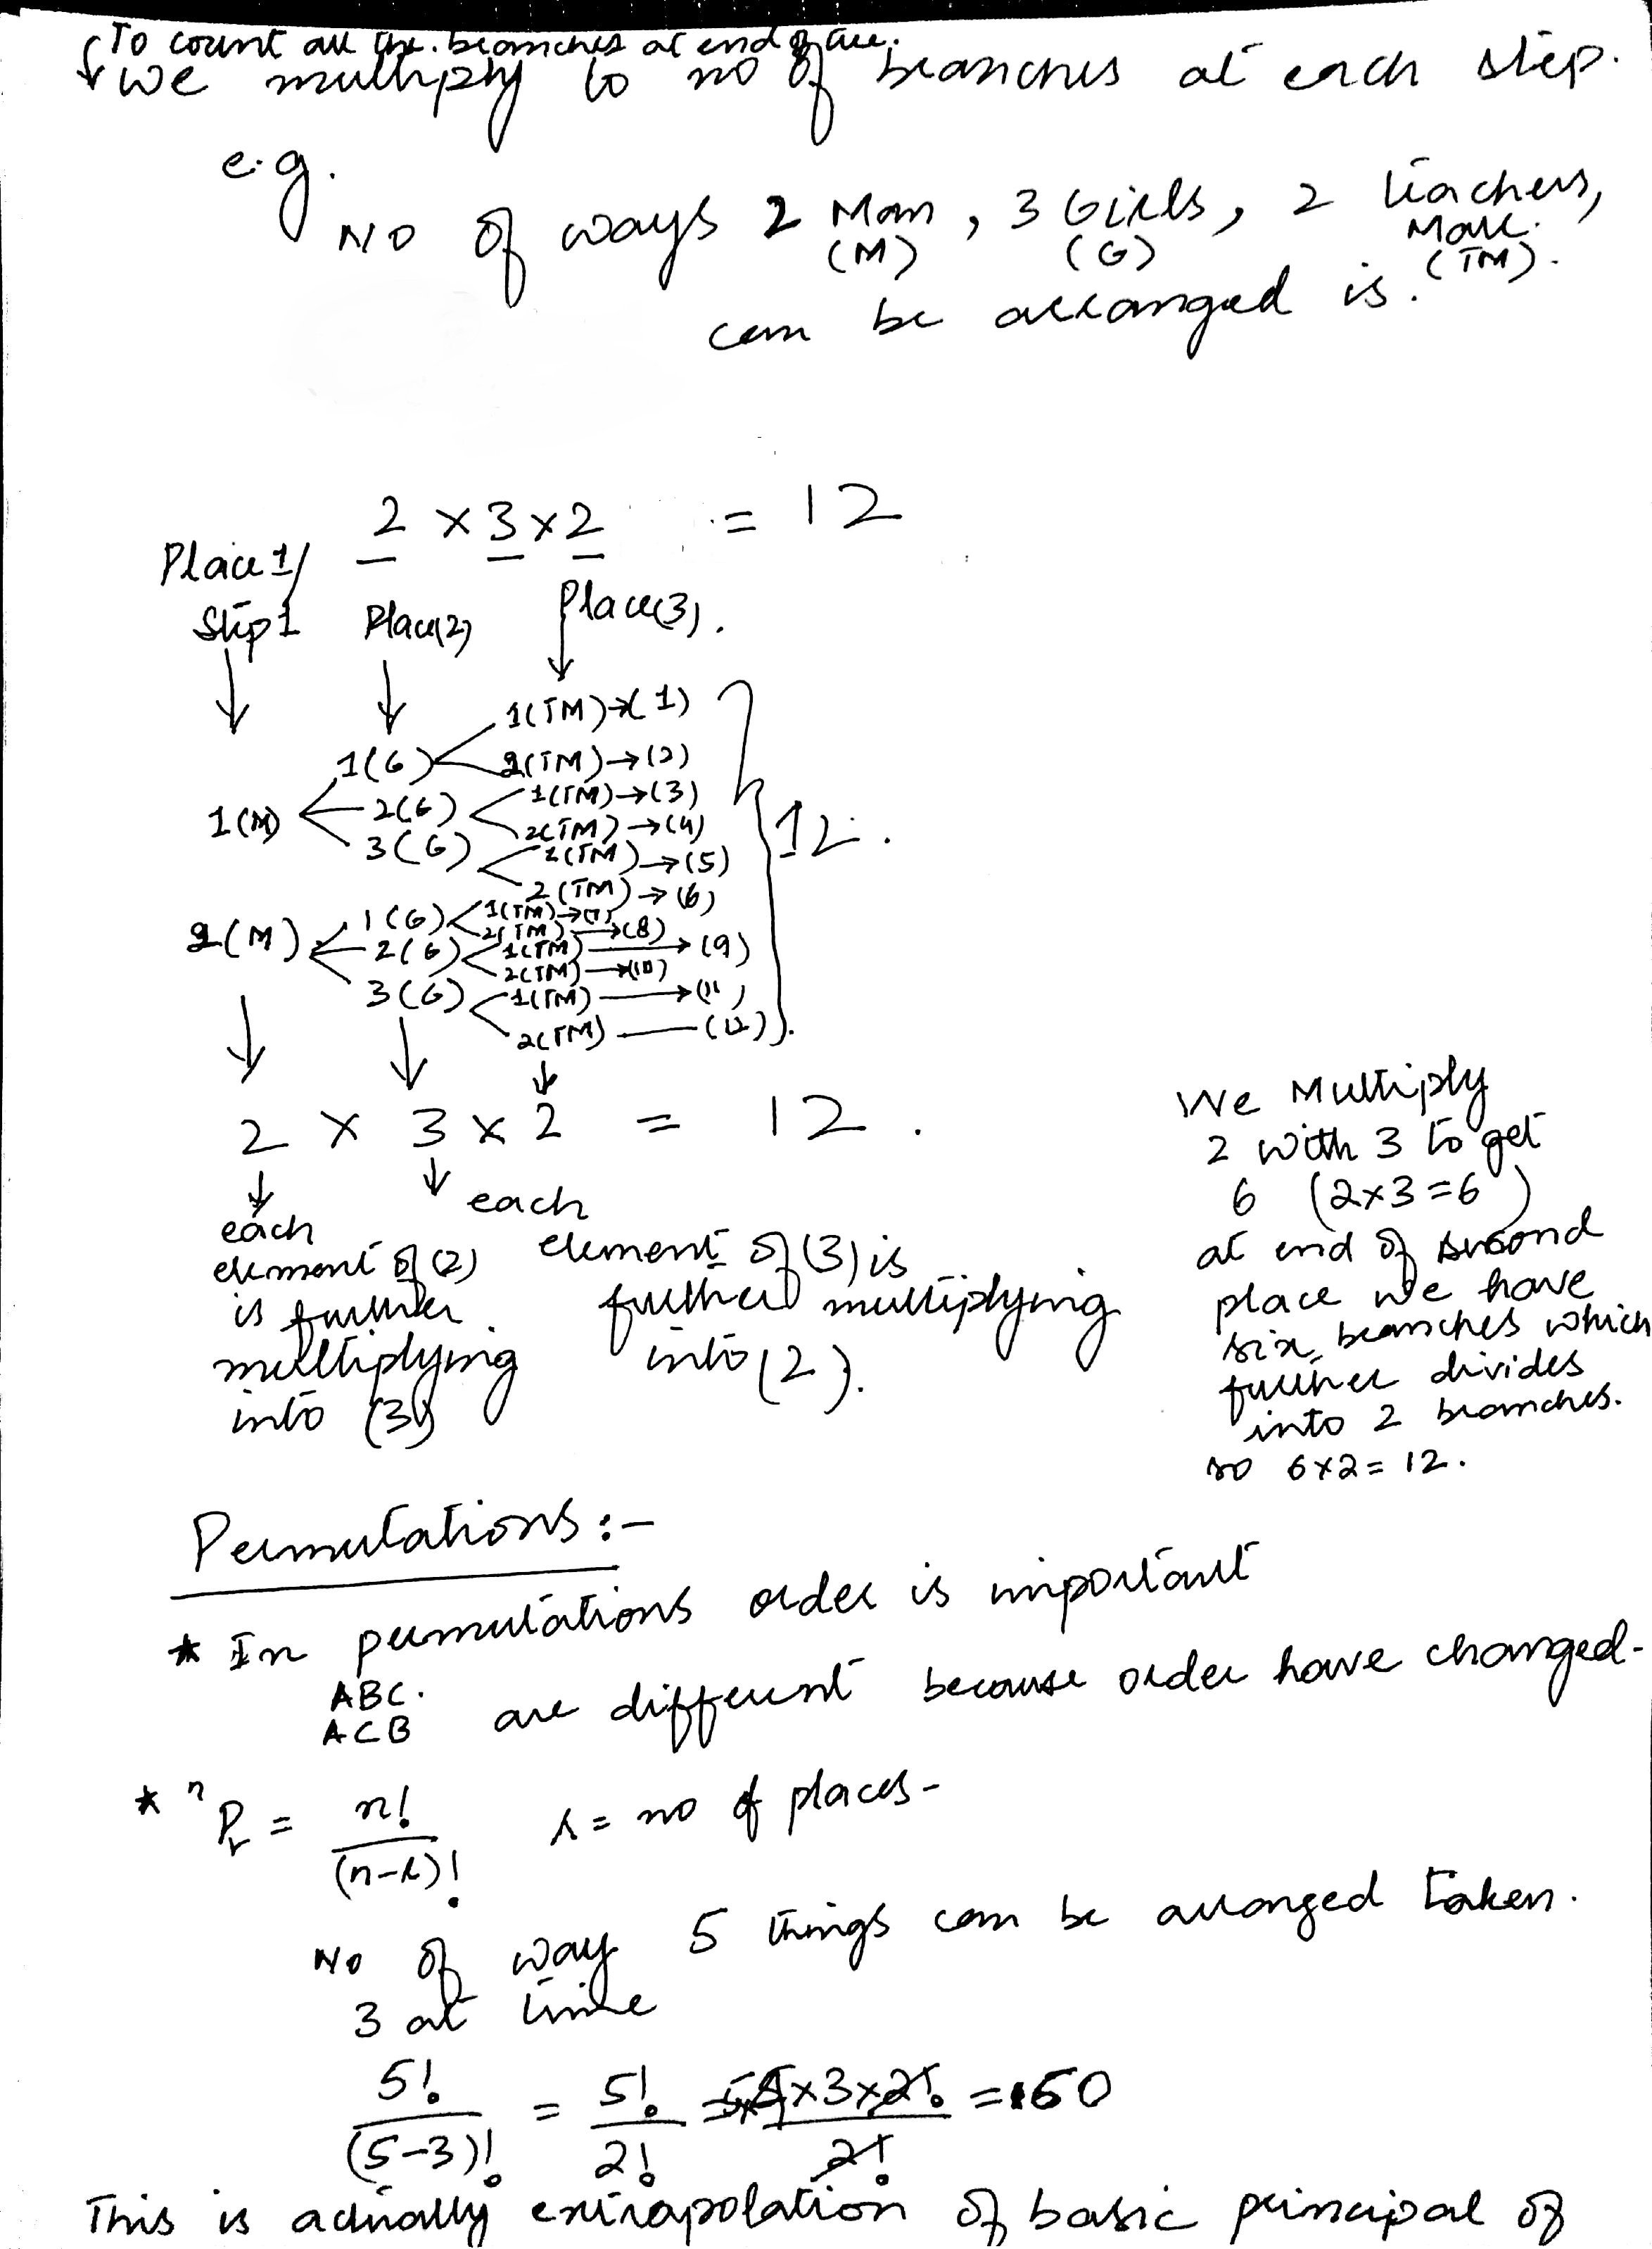 To count all the. branches at end of tree.
we multiply to no of branches at each step.
e.g.
No of ways 2 Man, 3 Girls, 2 teachers,
(M) (G) Male.
(TM).
can be arranged is.
2 × 3 × 2 = 12
Place 1/
Step 1 Place(2) Place(3).
1(TM)→(1)
1(G) 2(TM)→(2)
1(M) 2(G) 1(TM)→(3)
2(TM)→(4)
3(G) 1(TM)→(5)
2(TM)→(6)
12.
2(M) 1(G) 1(TM)→(7)
2(TM)→(8)
2(G) 1(TM)→(9)
2(TM)→(10)
3(G) 1(TM)→(11)
2(TM)—(12)
2 × 3 × 2 = 12.
each
element of (2)
is further
multiplying
into (3)
each
element of (3) is
further multiplying
into (2).
We Multiply
2 with 3 to get
6 (2×3=6)
at end of second
place we have
six branches which
further divides
into 2 branches.
so 6×2=12.
Permutations:-
* In permutations order is important
ABC.
ACB are different because order have changed-
* nPr = n!/(n-r)! r = no of places-
No of way 5 things can be arranged taken.
3 at time
5!/(5-3)! = 5!/2! = 5×4×3×2!/2! = 60
This is actually extrapolation of basic principal of